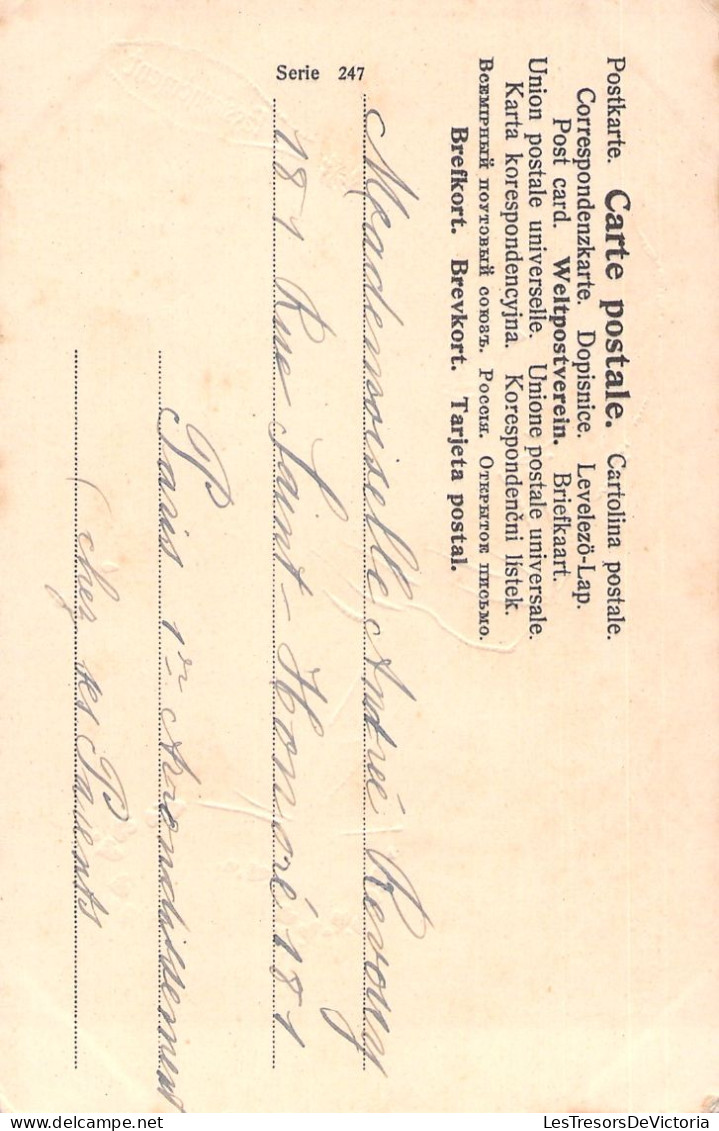 Postkarte. Carte postale. Cartolina postale.
Correspondenzkarte. Dopisnice. Levelező-Lap.
Post card. Weltpostverein. Briefkaart.
Union postale universelle. Unione postale universale.
Karta korespondencyjna. Korespondenční lístek.
Всемірный почтовый союзъ. Россія. Открытое письмо.
Brefkort. Brevkort. Tarjeta postal.
Serie 247
Mademoiselle Andrée
181 Rue Saint-Honoré 181
Paris 1er Arrondissement
(chez ses Parents
LesTresorsDeVictoria